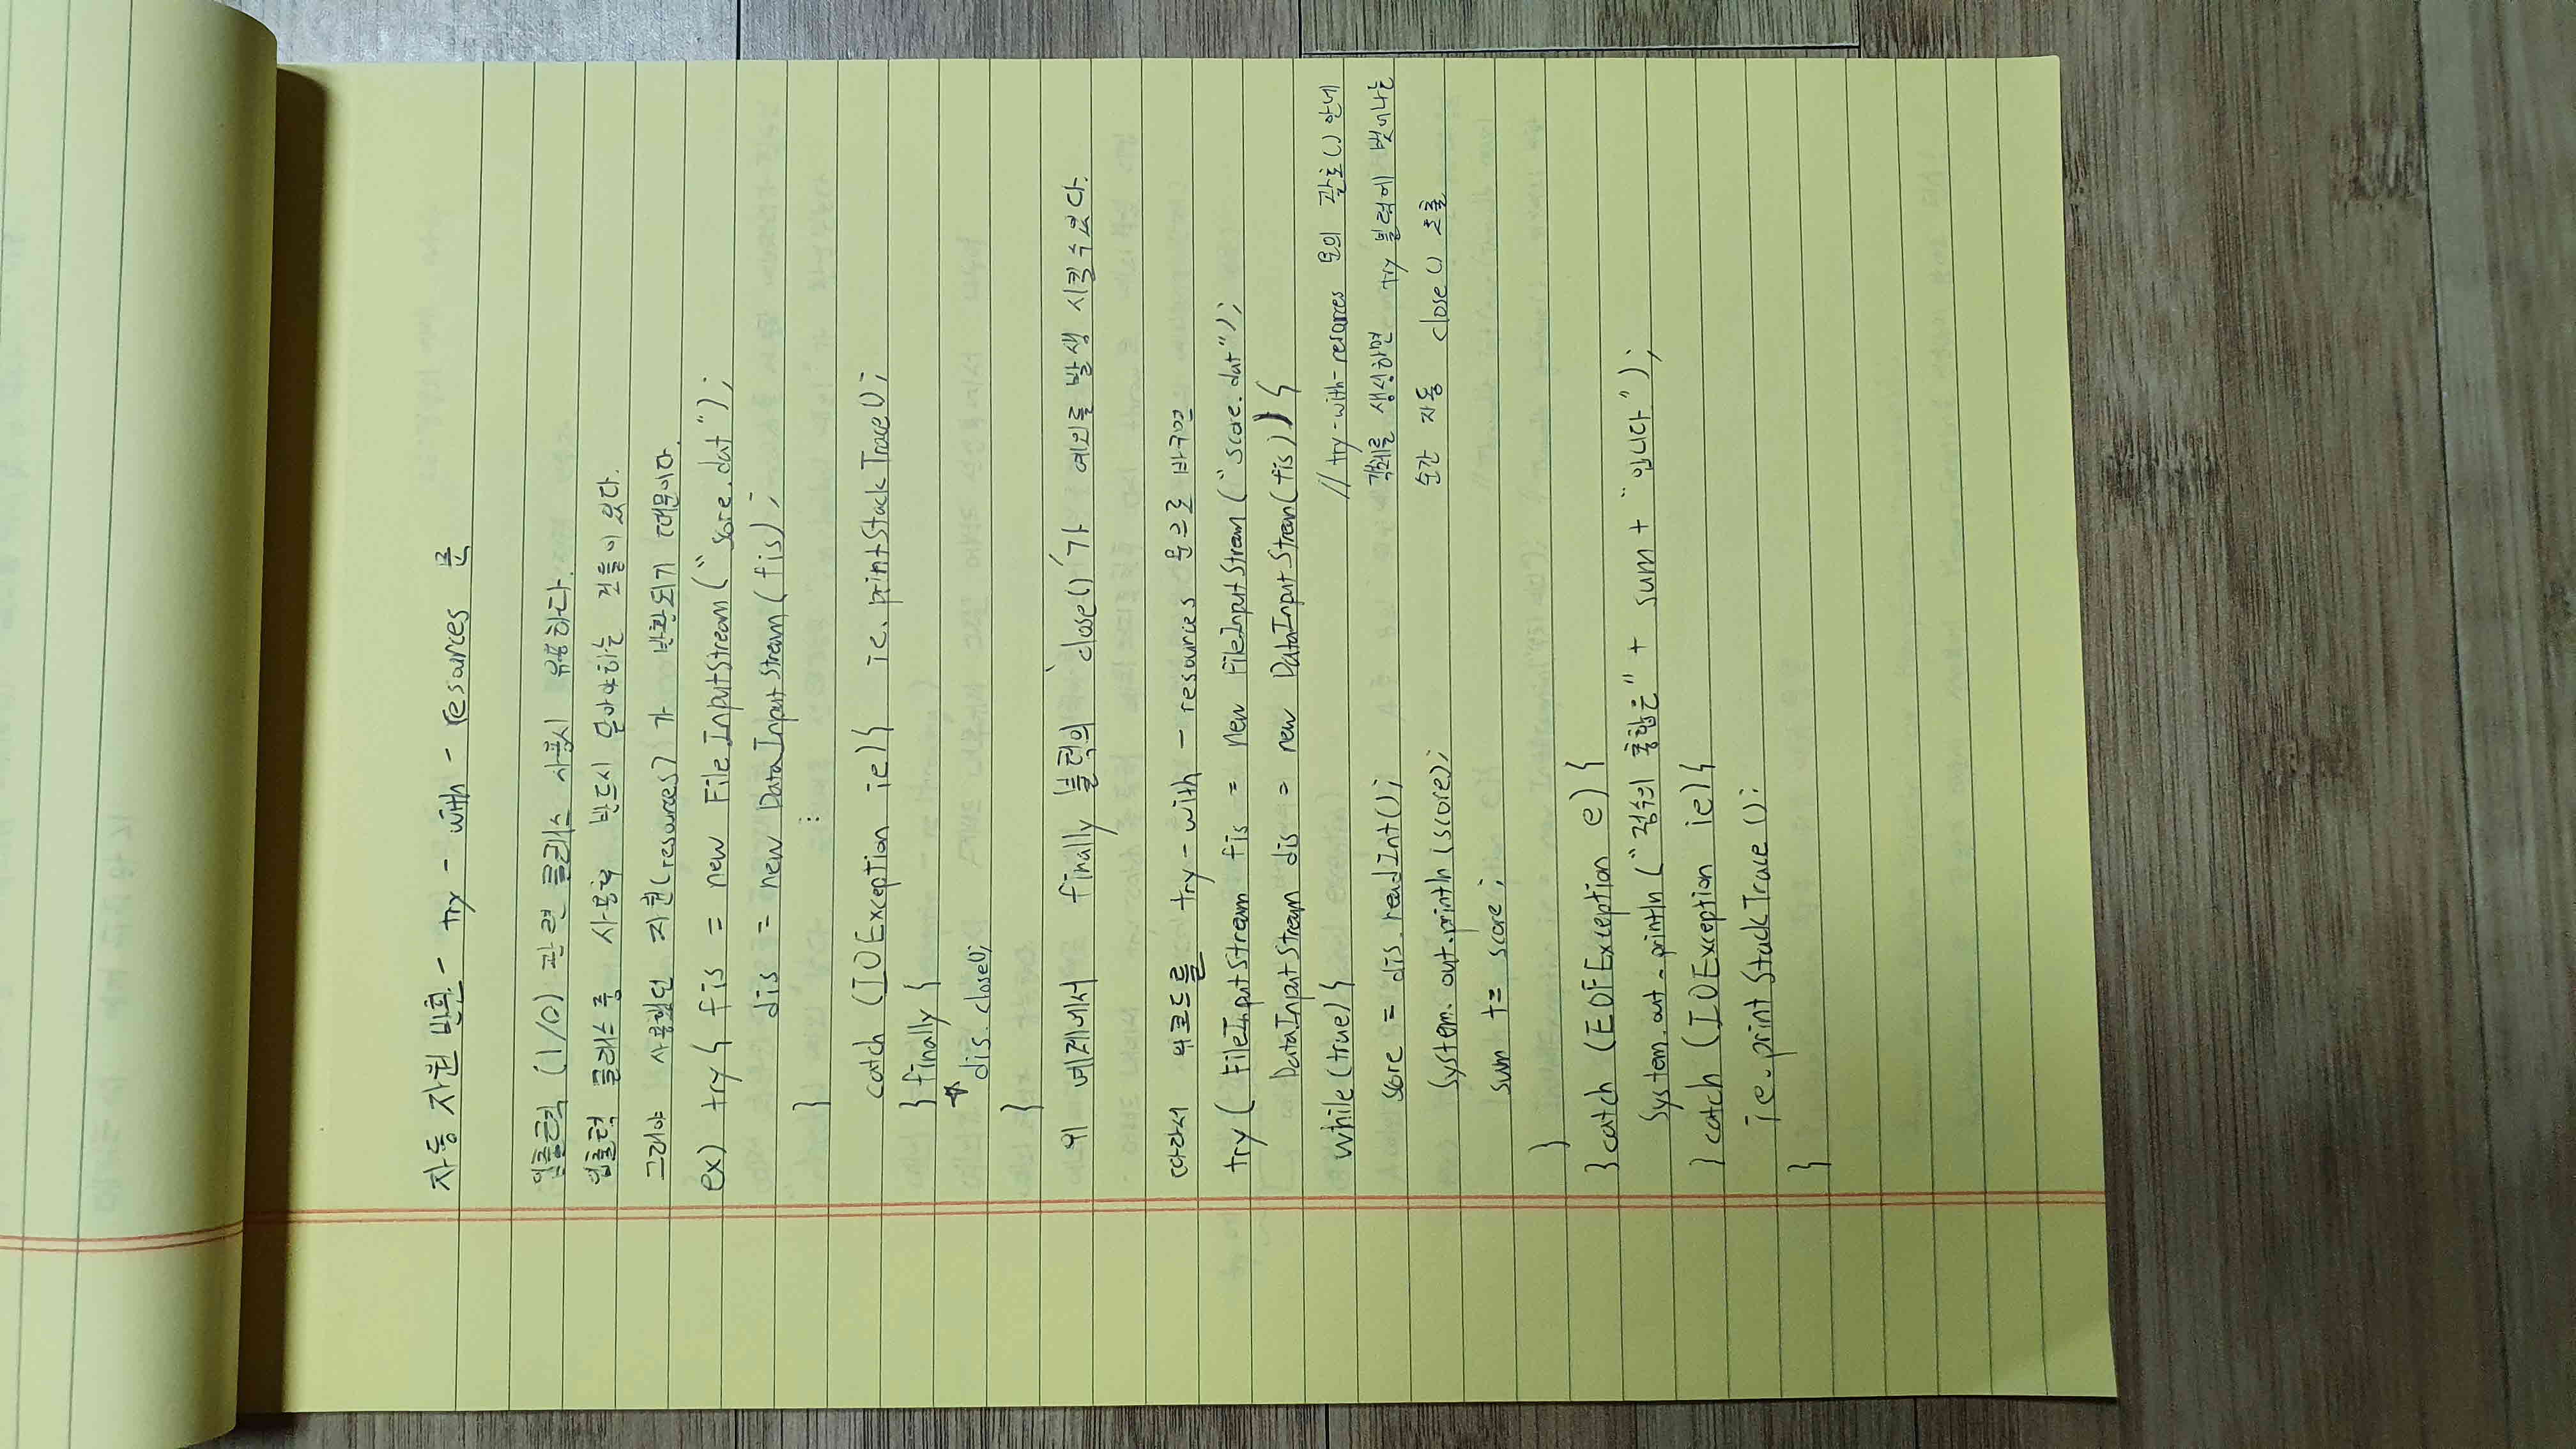 자동 자원 반환 - try - with - resources 문
입출력 (I/O) 관련 클래스 사용시 유용하다.
입출력 클래스 중 사용후 반드시 닫아야하는 것들이 있다.
그래야 사용했던 자원(resources)가 반환되기 때문이다.
ex) try { fis = new FileInputStream("sore.dat");
dis = new DataInputStream(fis);
}
catch (IOException ie){ ie.printStackTrace();
} finally {
☆dis.close();
}
위 예제에서 finally 블럭의 'close()'가 예외를 발생 시킬수있다.
따라서 위코드를 try - with - resources 문으로 바꾸면
try ( FileInputStream fis = new FileInputStream ("score.dat");
DataInputStream dis = new DataInputStream(fis)) {
while(true){ // try-with-resources 문의 괄호() 안네
score = dis.readInt(); 객체를 생성하면 try 블럭에 벗어나는
System.out.println(score); 순간 자동 close() 호출
sum += score;
}
}catch (EOFException e) {
System.out.println("점수의 총합은" + sum + "입니다");
}catch (IOException ie){
ie.printStackTrace();
}